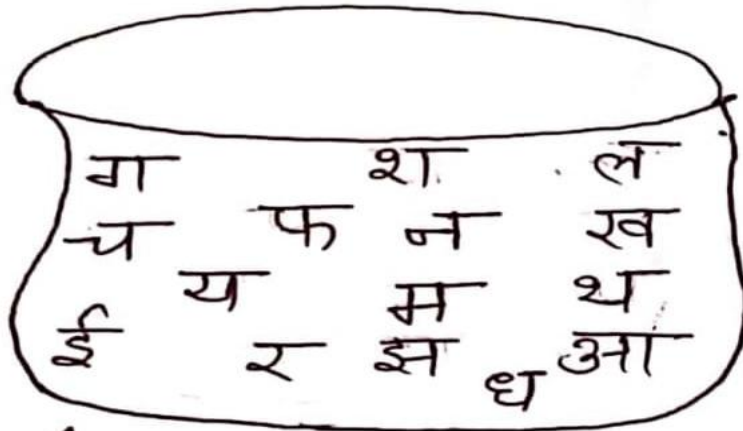 ग श ल
च फ न ख
य म थ
ई र झ ध आ